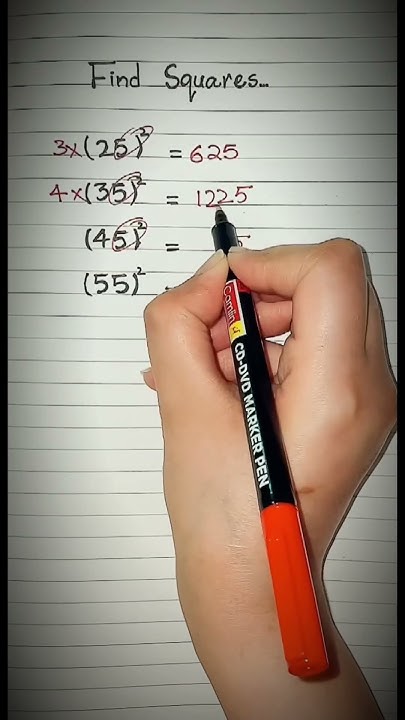 Find Squares...
3x(25)² = 625
4x(35)² = 1225
(45)² =
(55)²
Camlin
CD-DVD MARKER PEN